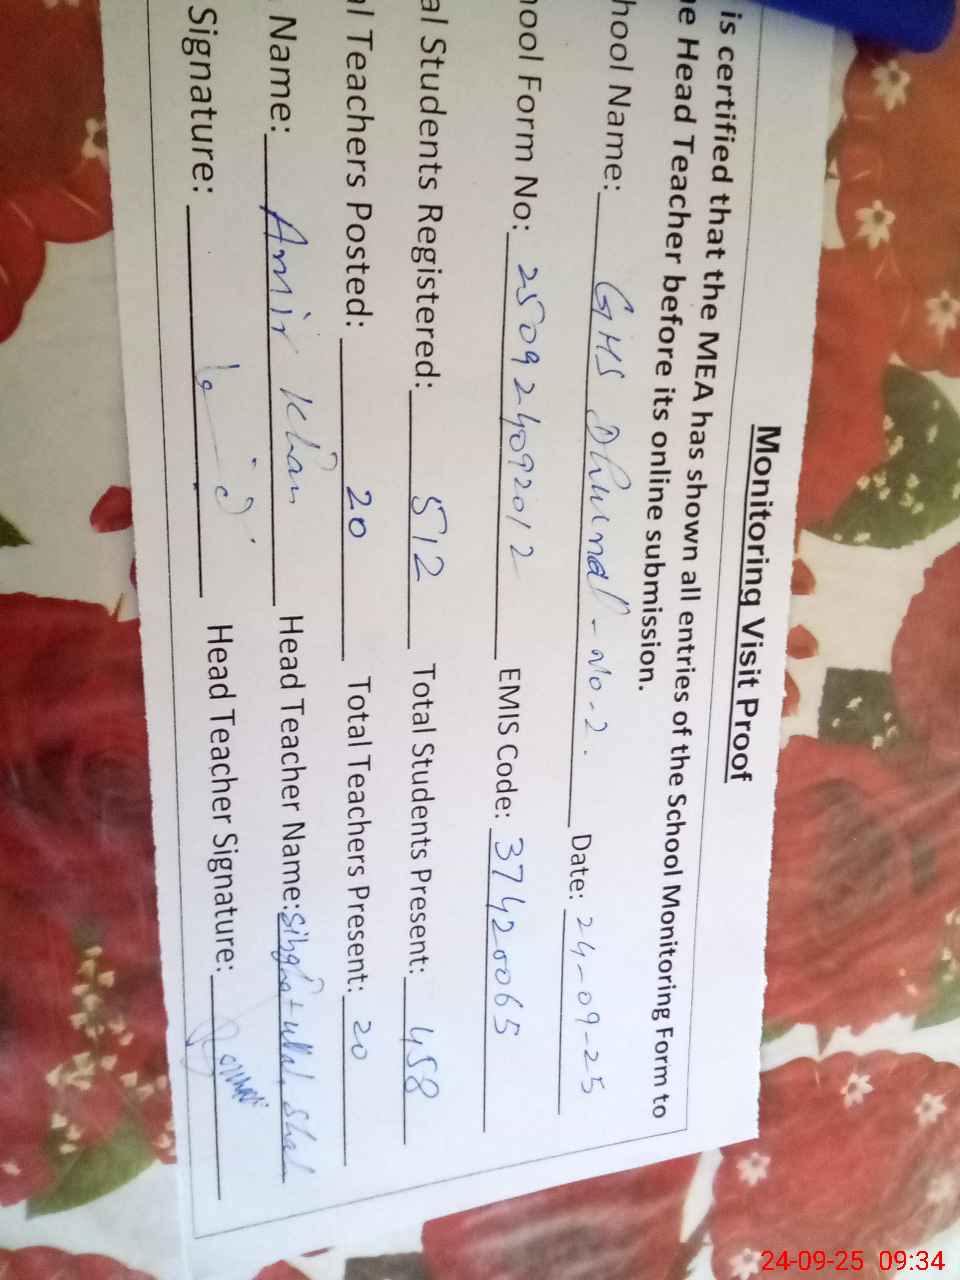 Monitoring Visit Proof
is certified that the MEA has shown all entries of the School Monitoring Form to
e Head Teacher before its online submission.
hool Name: GHS Dhurnal-No-2. Date: 24-09-25
ool Form No: 250924092012 EMIS Code: 37420065
al Students Registered: 512 Total Students Present: 458
al Teachers Posted: 20 Total Teachers Present: 20
Name: Amir Khan Head Teacher Name: Sibghat ullah shah
Signature: Head Teacher Signature:
24-09-25 09:34